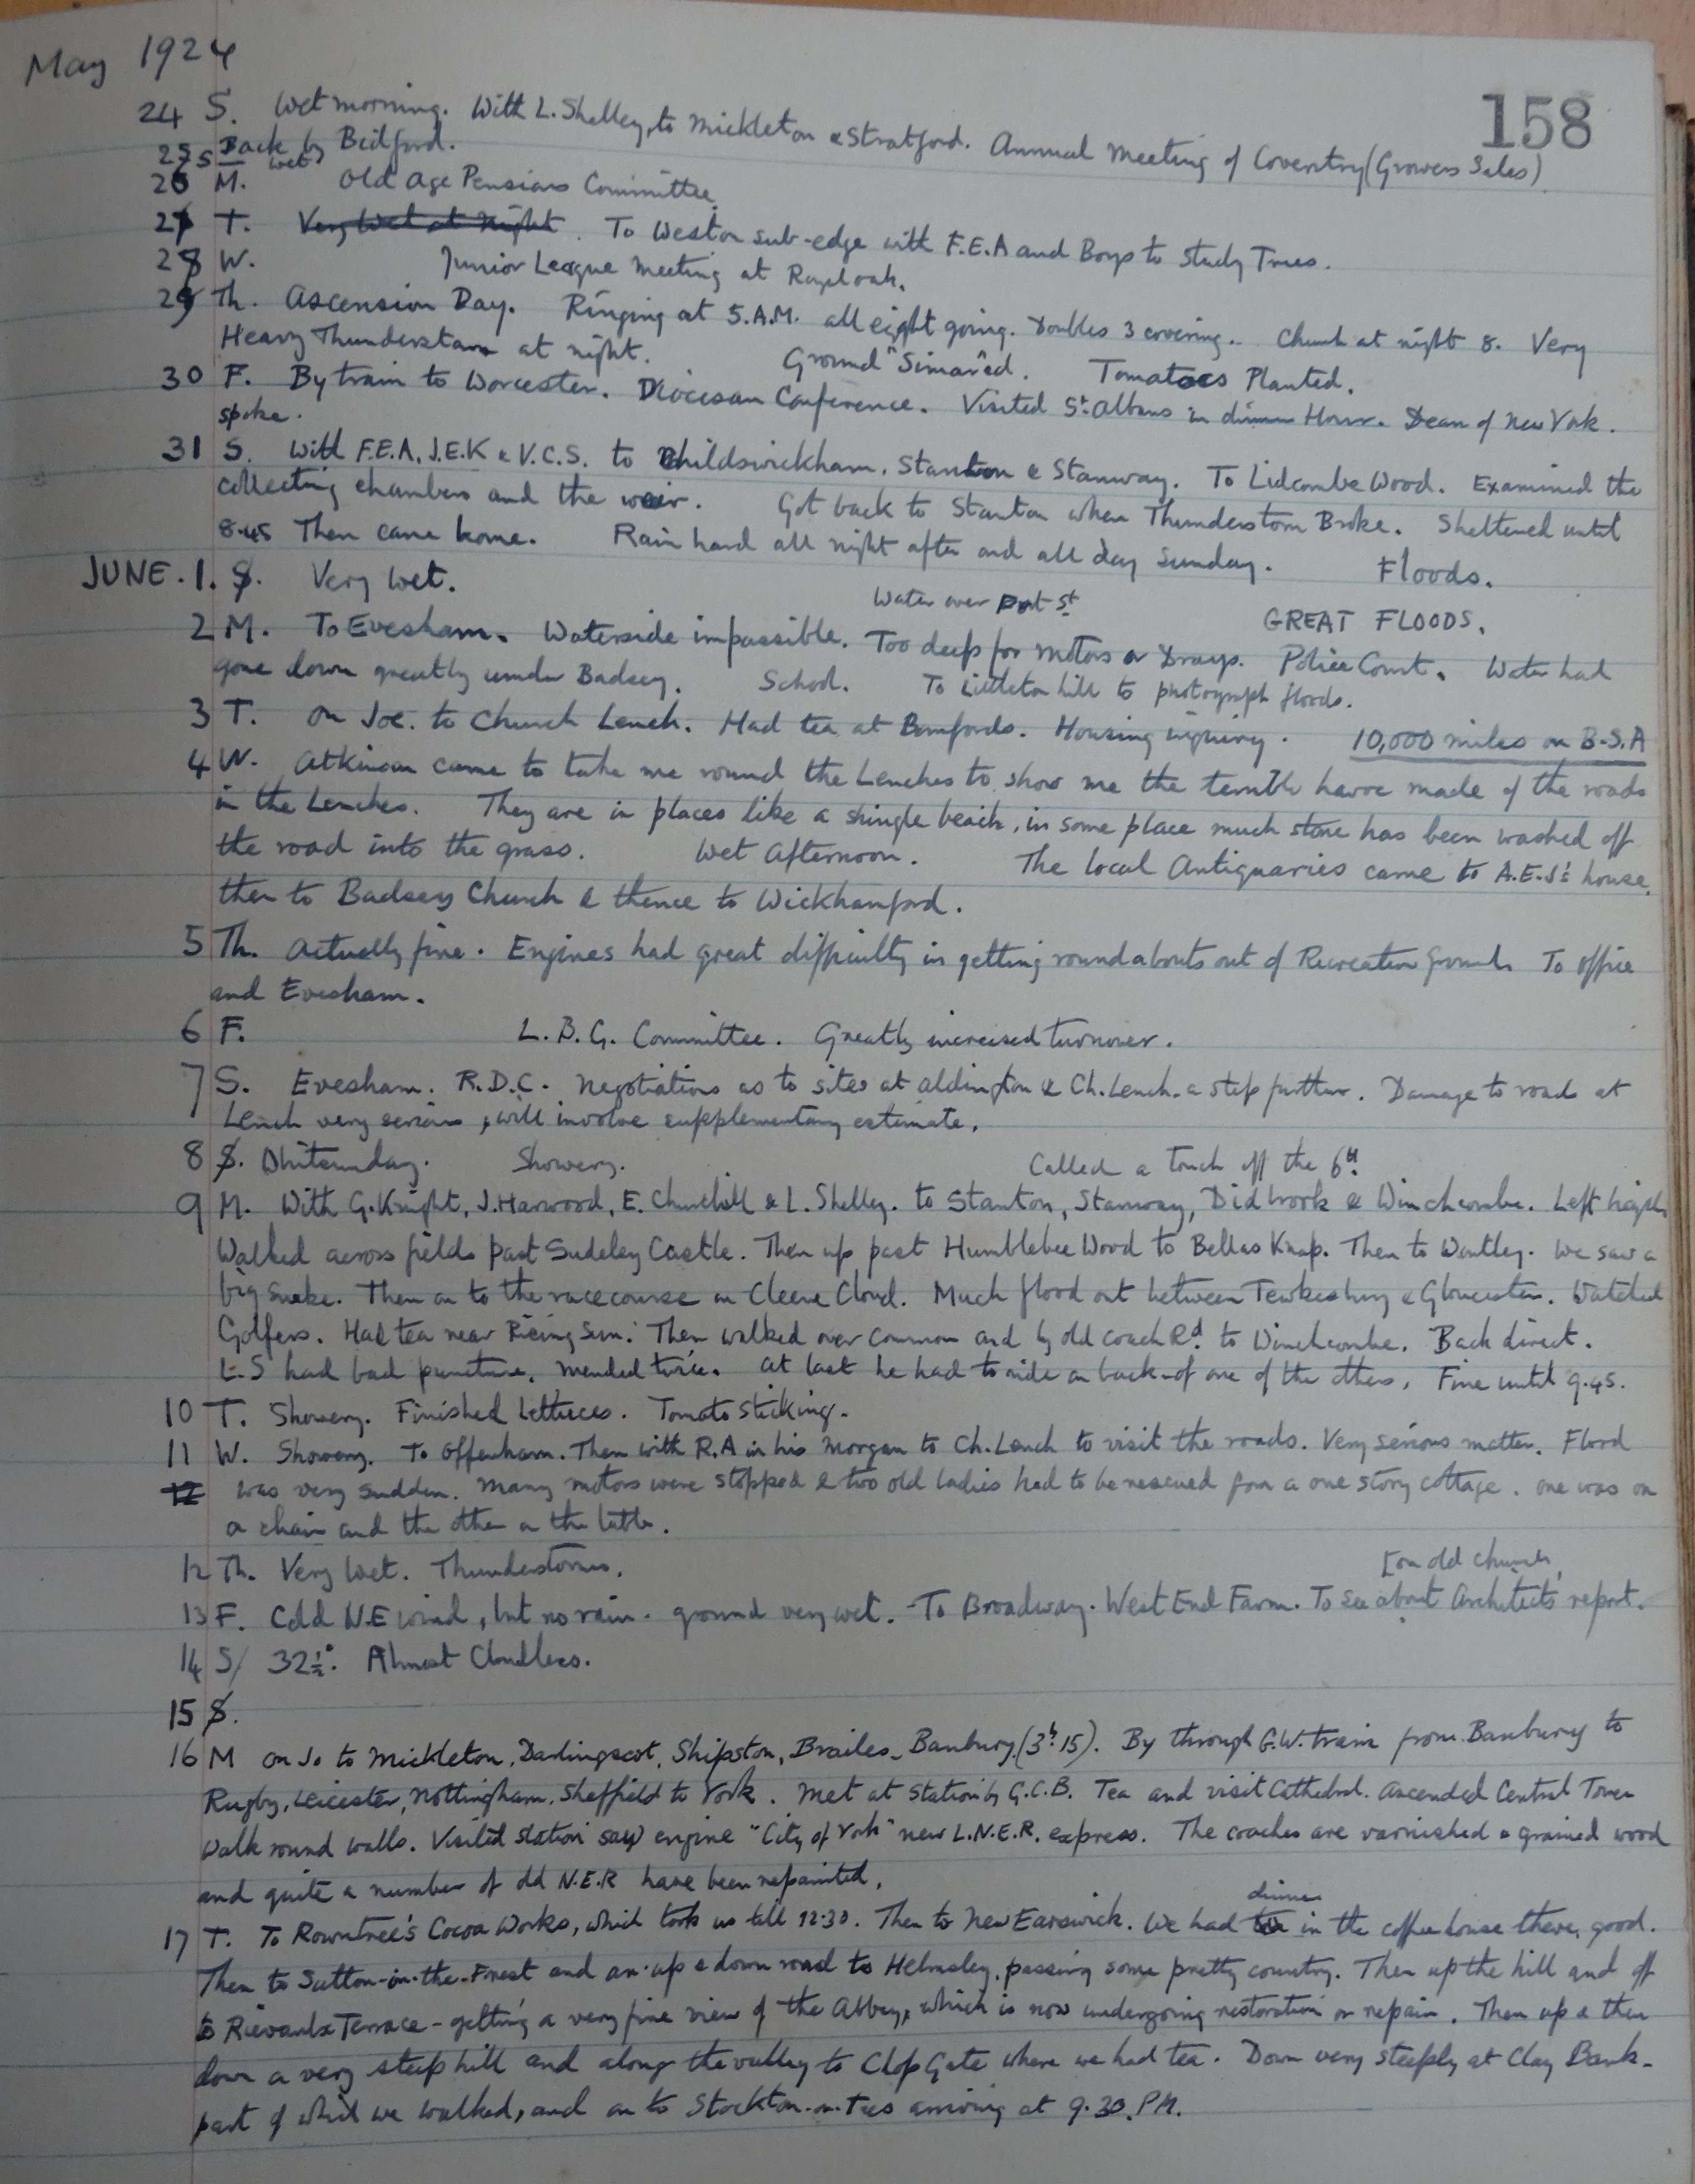 May 1924
158
24 S. Wet morning. With L. Shelley, to Mickleton & Stratford. Annual Meeting of Coventry (Growers Sales)
Back by Bidford.
25 S wet
26 M. Old Age Pensions Committee.
27 T. Very Wet at Night. To Weston sub-edge with F.E.A and Boys to study Trees.
28 W. Junior League Meeting at Royal oak.
29 Th. Ascension Day. Ringing at 5.A.M. all eight going. Doubles 3 covering.. Church at night 8. Very
Heavy Thunderstorm at night. Ground "Simared". Tomatoes Planted.
30 F. By train to Worcester. Diocesan Conference. Visited St. Albans in dinner Hour. Dean of New York.
spoke.
31 S. With F.E.A, J.E.K & V.C.S. to Childswickham, Stanton & Stanway. To Lidcombe Wood. Examined the
collecting chambers and the weir. Got back to Stanton when Thunderstorm Broke. Sheltered until
8.45 Then came home. Rain hard all night after and all day Sunday. Floods.
JUNE. 1. S. Very Wet.
Water over Port St
GREAT FLOODS.
2 M. To Evesham. Waterside impassible. Too deep for motors or Drays. Police Court. Water had
gone down greatly under Badsey. School. To Littleton hill to photograph floods.
3 T. On Joe. to Church Lench. Had tea at Bomfords. Housing inquiry. 10,000 miles on B.S.A
4 W. Atkinson came to take me round the Lenches to show me the terrible havoc made of the roads
in the Lenches. They are in places like a shingle beach, in some place much stone has been washed off
the road into the grass. Wet Afternoon. The local Antiquaries came to A.E.J's house,
then to Badsey Church & thence to Wickhamford.
5 Th. Actually fine. Engines had great difficulty in getting roundabouts out of Recreation Ground. To office
and Evesham.
6 F. L.B.G. Committee. Greatly increased turnover.
7 S. Evesham. R.D.C. Negotiations as to sites at Aldington & Ch. Lench. a step further. Damage to roads at
Lench very serious, will involve supplementary estimate.
8 S. Whitsunday. Showery. Called a touch off the 6th.
9 M. With G. Knight, J. Harwood, E. Churchill & L. Shelley. to Stanton, Stanway, Didbrook & Winchcombe. Left
Walked across fields past Sudeley Castle. Then up past Humblebee Wood to Bellas Knap. Then to Wontley. We saw a
big snake. Then on to the racecourse on Cleeve Cloud. Much flood out between Tewkesbury & Gloucester. Watched
Golfers. Had tea near Rising Sun. Then walked over common and by old coach Rd. to Winchcombe. Back direct.
L.S had bad puncture. Mended twice. At last he had to ride on back of one of the others. Fine until 9.45.
10 T. Showery. Finished Lettuces. Tomato sticking.
11 W. Showery. To Offenham. Then with R.A in his Morgan to Ch. Lench to visit the roads. Very serious matter. Flood
12 was very sudden. Many motors were stopped & two old ladies had to be rescued from a one story cottage. One was on
a chair and the other on the table.
12 Th. Very Wet. Thunderstorms.
[on old church,
13 F. Cold N.E wind, but no rain. ground very wet. To Broadway. West End Farm. To see about Architects report.
14 S/ 32½°. Almost Cloudless.
15 S.
16 M On Jo to Mickleton, Darlingscot, Shipston, Brailes, Banbury (3h. 15). By through G.W. train from Banbury to
Rugby, Leicester, Nottingham, Sheffield to York. Met at Station by G.C.B. Tea and visit Cathedral. Ascended Central Tower
Walk round walls. Visited station saw engine "City of York" new L.N.E.R. express. The coaches are varnished & grained wood
and quite a number of old N.E.R have been repainted.
dinner
17 T. To Rowntree's Cocoa Works, which took us till 12.30. Then to New Earswick. We had tea in the coffee house there, good.
Then to Sutton-in-the-Forest and an up & down road to Helmsley, passing some pretty country. Then up the hill and off
to Rievaulx Terrace - getting a very fine view of the Abbey, which is now undergoing restoration or repair. Then up & then
down a very steep hill and along the valley to Chop Gate where we had tea. Down very steeply at Clay Bank -
part of which we walked, and on to Stockton-on-Tees arriving at 9.30. P.M.